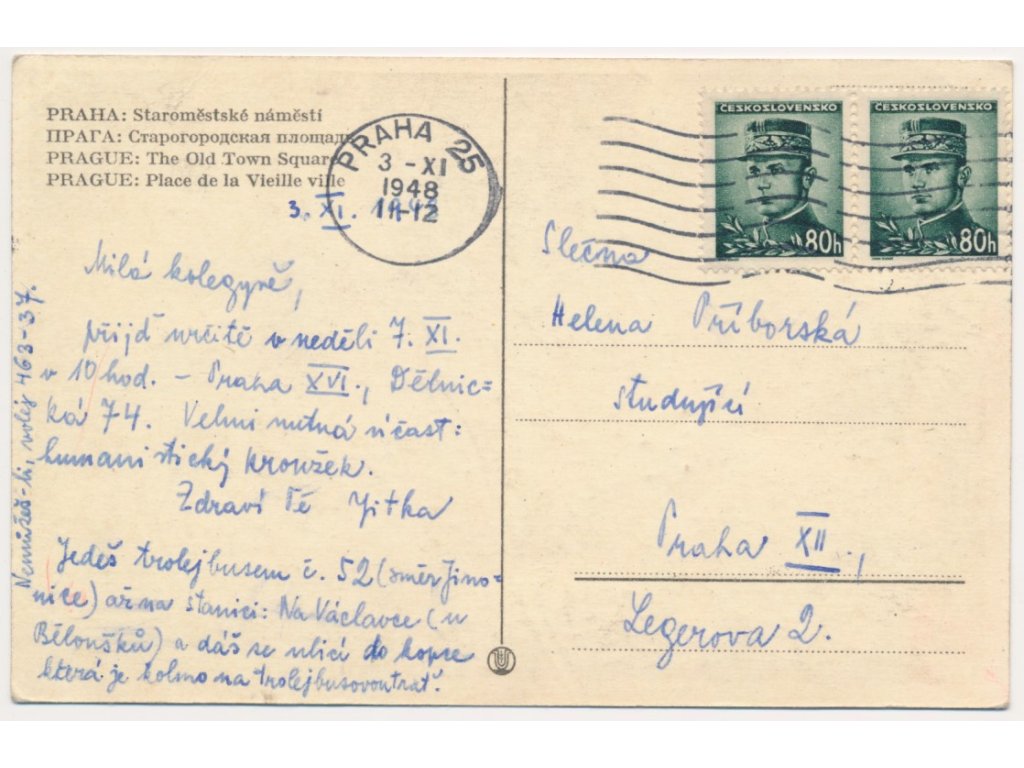 PRAHA: Staroměstské náměstí
ПРАГА: Старогородская площадь
PRAGUE: The Old Town Square
PRAGUE: Place de la Vieille ville
3. XI. 1948
Milá kolegyně,
přijď určitě v neděli 7. XI.
v 10 hod. – Praha XVI., Dělnic=
ká 74. Velmi nutná účast:
humanistický kroužek.
Zdraví Tě Jitka
Jedeš trolejbusem č. 52 (směr Jino=
nice) až na stanici: Na Václavce (u
Běloušků) a dáš se ulicí do kopce
která je kolmo na trolejbusovou trať.
Nemůžeš-li, volej 463-37.
PRAHA 25
3 - XI
1948
11-12
ČESKOSLOVENSKO
80h
ČESKOSLOVENSKO
80h
Slečna
Helena Příborská
studující
Praha XII.,
Legerova 2.